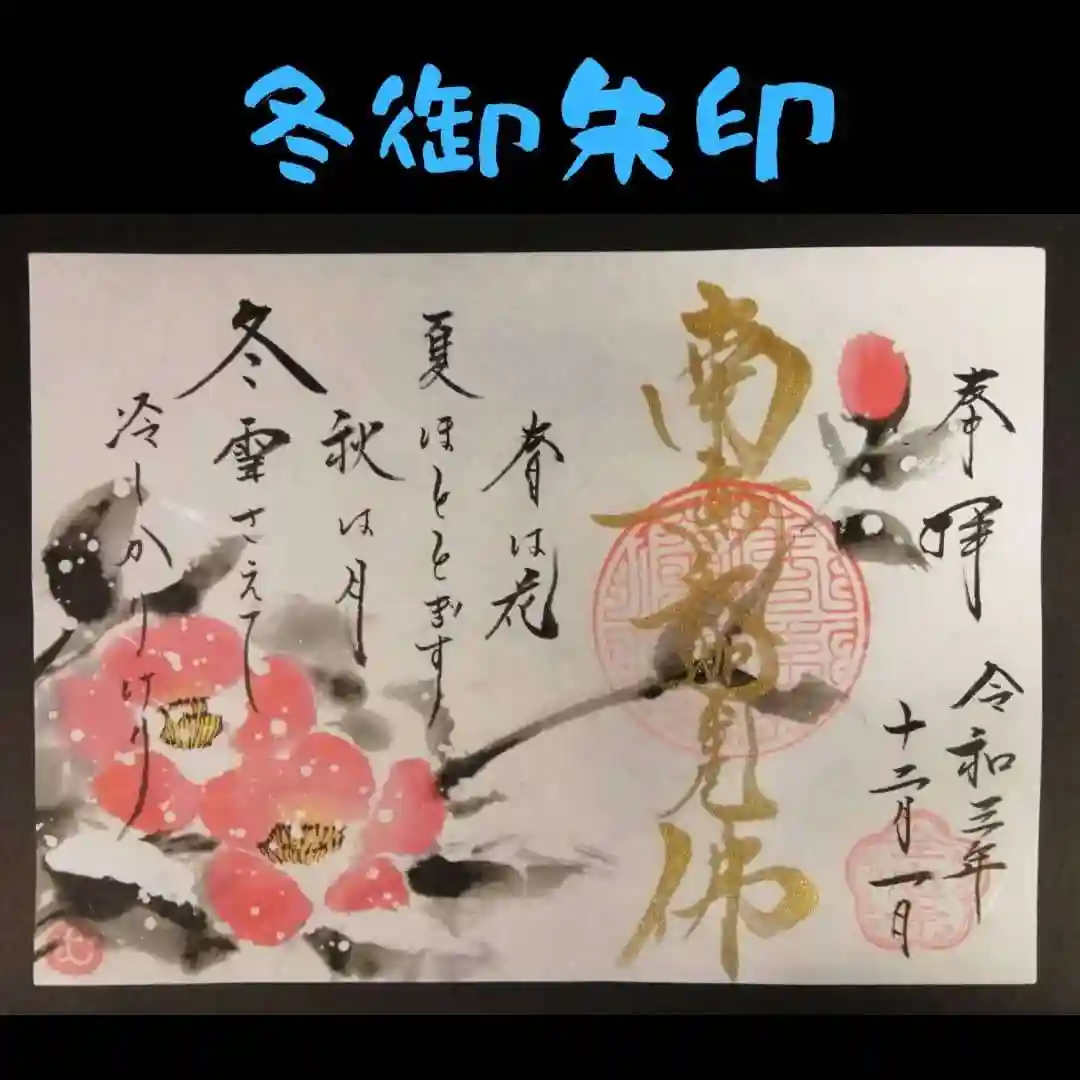 冬御朱印
奉拝
令和三年
十二月一日
南無釈迦牟尼佛
春は花
夏ほととぎす
秋は月
冬雪さえて
冷しかりけり